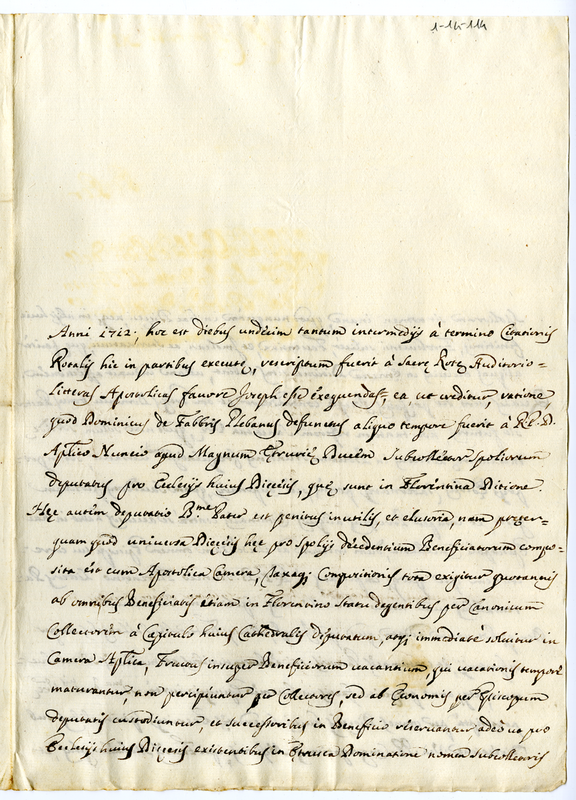 1-14-114
Anni 1712; hoc est diebus undecim tantum intermedijs à termino Citationis
Rotalis hic in partibus executę, rescriptum fuerit à Sacrę Rotę Auditorio=
litteras Apostolicas favore Joseph esse exequendas, ea ut creditur, ratione
quod Dominicus de Fabbris Plebanus defunctus aliquo tempore fuerit à R. P. D.
Aplico Nuncio apud Magnum Etrurię Ducem Subcollector spoliorum
deputatus pro Ecclesijs huius Dięcesis, quę sunt in Florentina Ditione.
Hęc autem deputatio B.me Pater est penitus inutilis, et elusoria, nam pręter=
quam quod universa Dięcesis hęc pro Spolijs decedentium Beneficiatorum compo=
sita est cum Apostolica Camera, taxaq; Compositionis tota exigitur quotannis
ab omnibus Beneficiatis etiam in Florentino Statu degentibus per Canonicum
Collectorem à Capitulo huius Cathedralis deputatum, atq; immediatè solvitur in
Camera Aplica, Fructus insuper Beneficiorum vacantium, qui vacationis tempore
maturantur, non percipiuntur per Collectores, sed ab Ęconomis per Episcopum
deputatis custodiuntur, et successoribus in Beneficio reservantur, adeò ut pro
Ecclesijs huius Dięcesis existentibus in Etrusca Dominatione nomen Subcollectoris